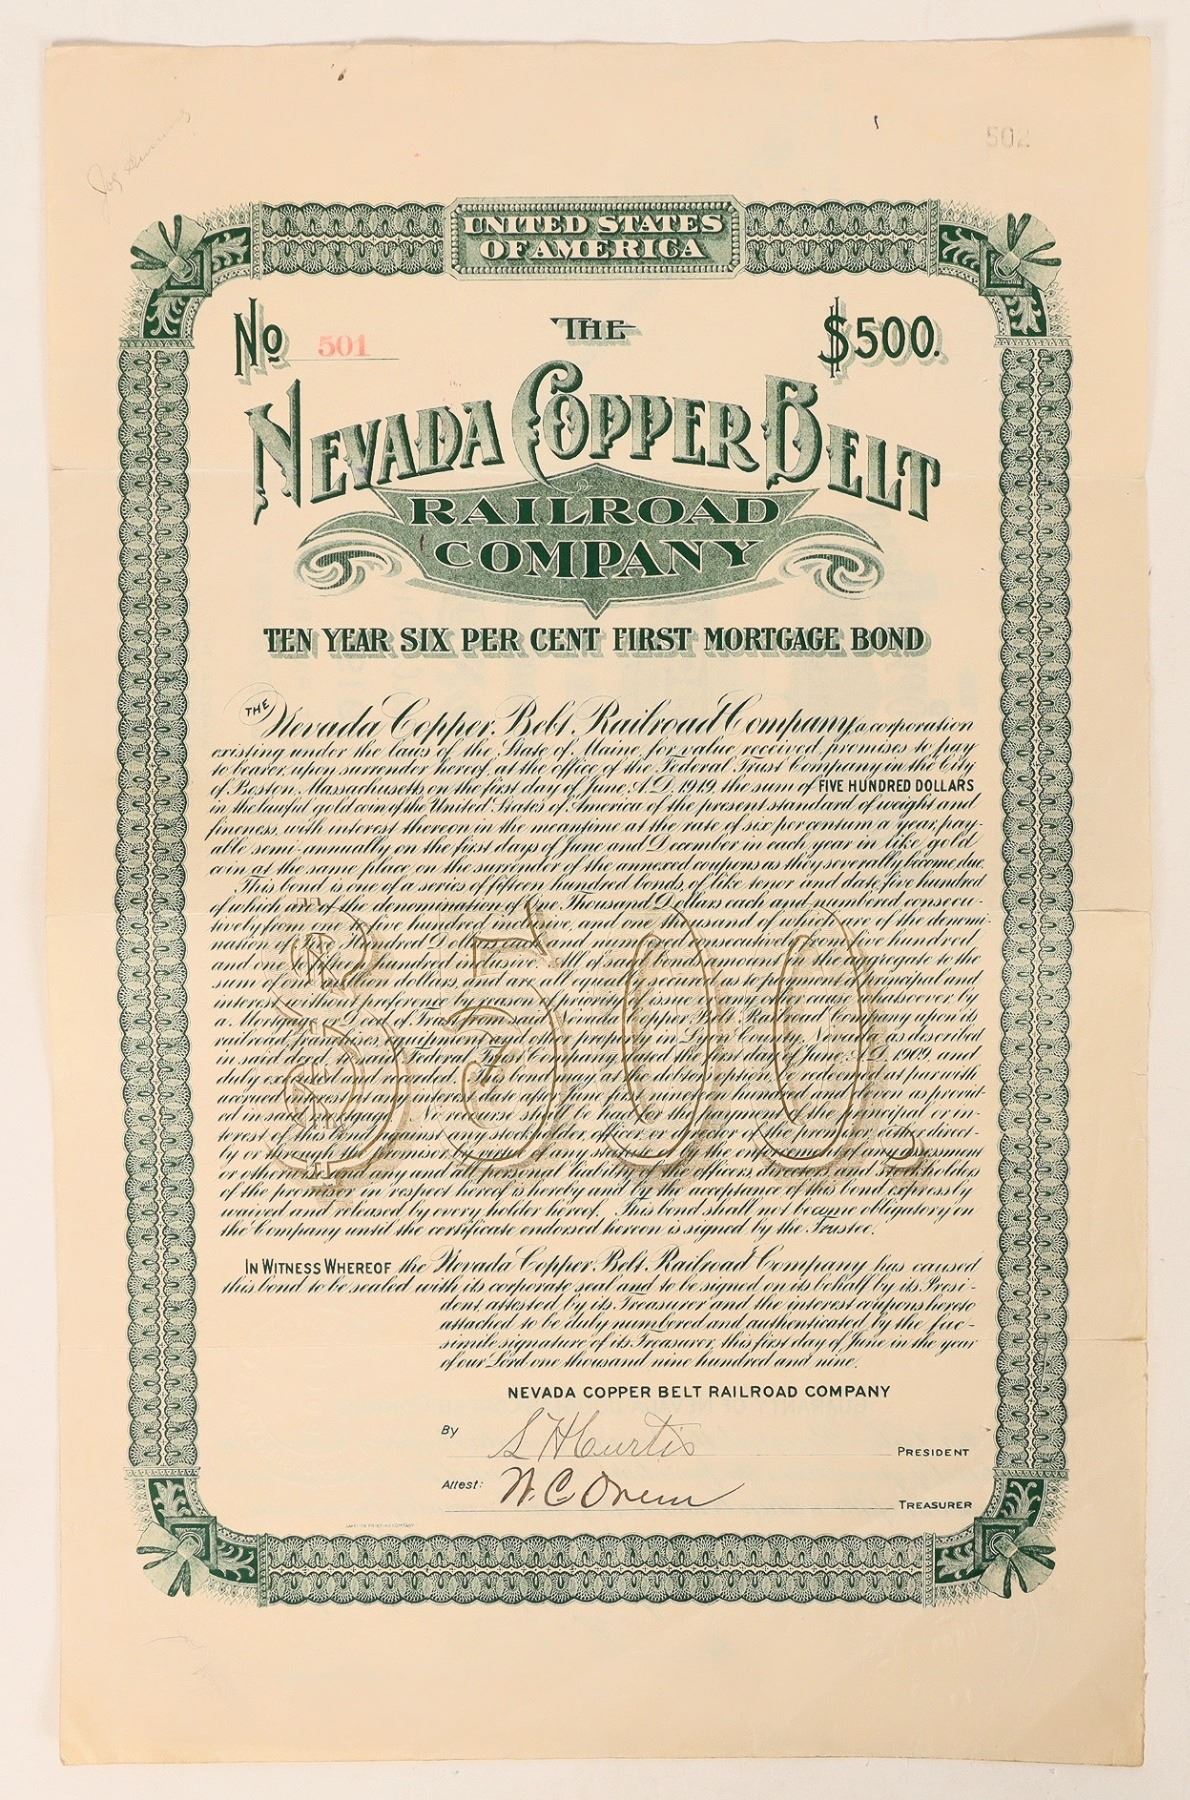 502
UNITED STATES
OF AMERICA
No 501
THE
$500.
NEVADA COPPER BELT
RAILROAD
COMPANY
TEN YEAR SIX PER CENT FIRST MORTGAGE BOND
THE Nevada Copper Belt Railroad Company, a corporation
existing under the laws of the State of Maine, for value received, promises to pay
to bearer, upon surrender hereof, at the office of the Federal Trust Company in the City
of Boston, Massachusetts, on the first day of June, A.D. 1919, the sum of FIVE HUNDRED DOLLARS
in the lawful gold coin of the United States of America of the present standard of weight and
fineness, with interest thereon in the meantime at the rate of six per centum a year, pay-
able semi-annually on the first days of June and December in each year in like gold
coin at the same place, on the surrender of the annexed coupons as they severally become due.
This bond is one of a series of fifteen hundred bonds, of like tenor and date, five hundred
of which are of the denomination of One Thousand Dollars each and numbered consecu-
tively from one to five hundred inclusive, and one thousand of which are of the denomi-
nation of Five Hundred Dollars each and numbered consecutively from five hundred
and one to fifteen hundred inclusive. All of said bonds amount in the aggregate to the
sum of one million dollars, and are all equally secured as to payment of principal and
interest, without preference by reason of priority of issue or any other cause whatsoever, by
a Mortgage or Deed of Trust from said Nevada Copper Belt Railroad Company upon its
railroad, franchises, equipment and other property in Lyon County, Nevada, as described
in said deed, to said Federal Trust Company, dated the first day of June, A.D. 1909, and
duly executed and recorded. This bond may, at the debtors option, be redeemed at par with
accrued interest at any interest date after June first, nineteen hundred and eleven as provid-
ed in said mortgage. No recourse shall be had for the payment of the principal or in-
terest of this bond against any stockholder, officer or director of the promisor, either direct-
ly or through the promisor, by virtue of any statute or by the enforcement of any assessment
or otherwise, and any and all personal liability of the officers, directors and stockholders
of the promisor in respect hereof is hereby and by the acceptance of this bond expressly
waived and released by every holder hereof. This bond shall not become obligatory on
the Company until the certificate endorsed hereon is signed by the Trustee.
$500.
IN WITNESS WHEREOF the Nevada Copper Belt Railroad Company has caused
this bond to be sealed with its corporate seal and to be signed on its behalf by its Presi-
dent, attested by its Treasurer and the interest coupons hereto
attached to be duly numbered and authenticated by the fac-
simile signature of its Treasurer, this first day of June in the year
of our Lord one thousand nine hundred and nine.
NEVADA COPPER BELT RAILROAD COMPANY
By S H Curtis PRESIDENT
Attest: W. C. Orem TREASURER